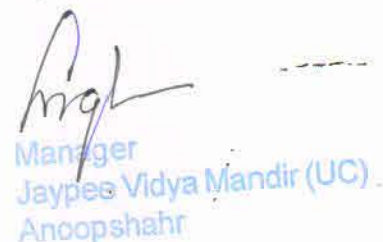 Manager
Jaypee Vidya Mandir (UC)
Anoopshahr